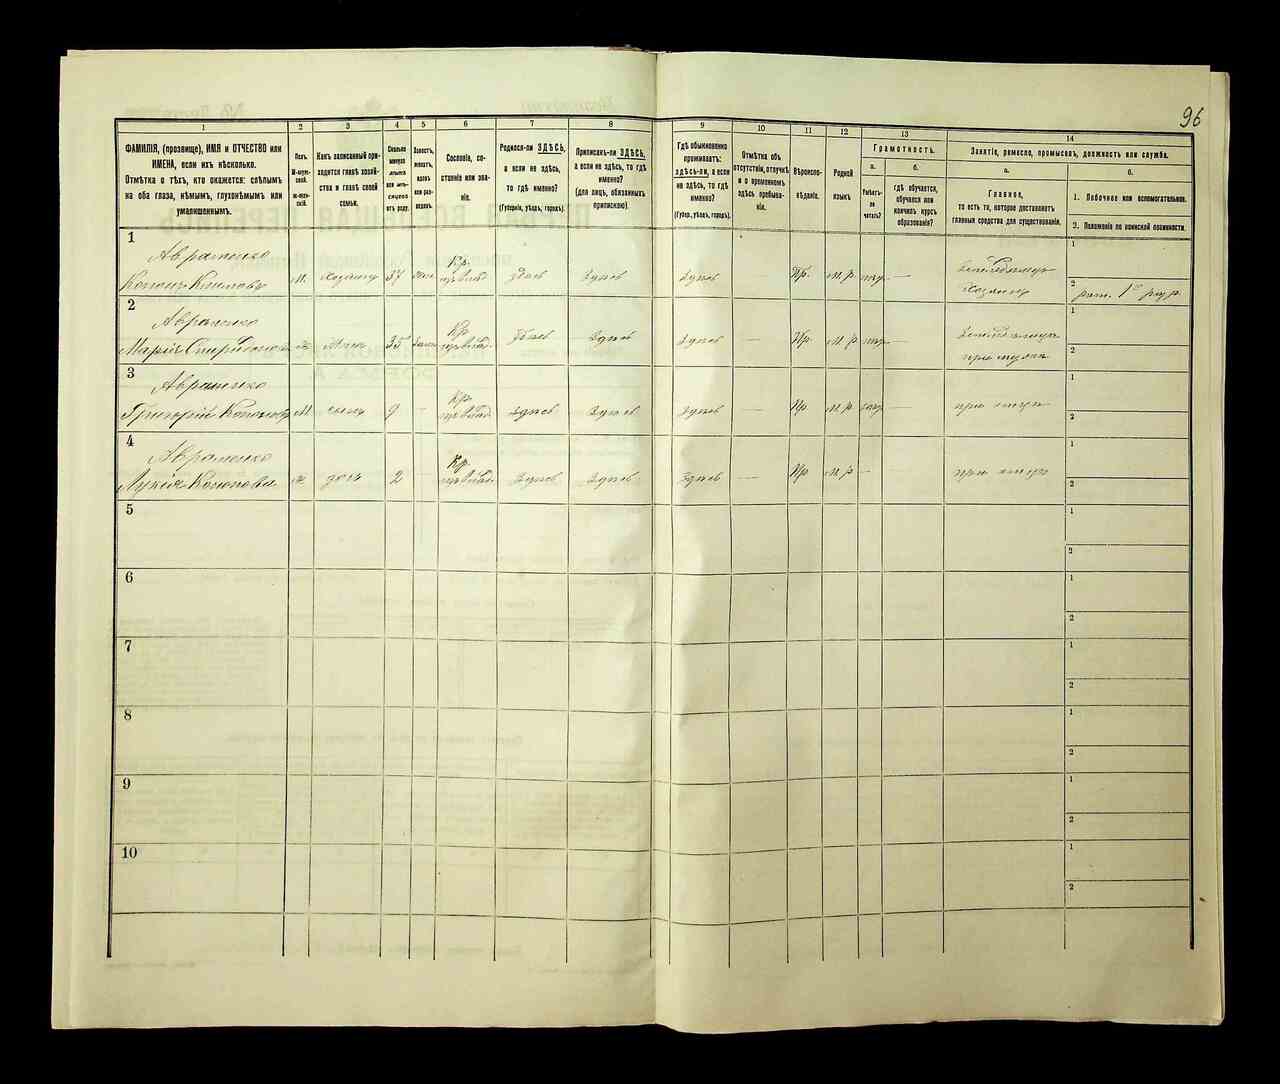 96
1 2 3 4 5 6 7 8 9 10 11 12 13 14
ФАМИЛІЯ, (прозвище), ИМЯ и ОТЧЕСТВО или
ИМЕНА, если ихъ нѣсколько.
Отмѣтка о тѣхъ, кто окажется: слѣпымъ
на оба глаза, нѣмымъ, глухонѣмымъ или
умалишеннымъ.
Полъ.
М-муж-
ской.
Ж-жен-
скій.
Какъ записанный при-
ходится главѣ хозяй-
ства и главѣ своей
семьи.
Сколько
минуло
лѣтъ
отъ роду.
Холостъ,
женатъ,
вдовъ
или раз-
веденъ.
Сословіе, со-
стояніе или зва-
ніе.
Родился-ли ЗДѢСЬ,
а если не здѣсь,
то гдѣ именно?
(Губернія, уѣздъ, городъ).
Приписанъ-ли ЗДѢСЬ,
а если не здѣсь, то гдѣ
именно?
(Для лицъ, обязанныхъ
припискою).
Гдѣ обыкновенно
проживаетъ:
здѣсь-ли, а если
не здѣсь, то гдѣ
именно?
(Губер., уѣздъ, городъ).
Отмѣтка объ
отсутствіи, отлучкѣ
и о временномъ
здѣсь пребыва-
ніи.
Вѣроиспо-
вѣданіе.
Родной
языкъ
Грамотность.
а.
Умѣетъ-
ли
читать?
б.
гдѣ обучается,
обучался или
кончилъ курсъ
образованія?
Занятіе, ремесло, промыселъ, должность или служба.
а.
Главное,
то есть то, которое доставляетъ
главныя средства для существованія.
б.
1. Побочное или вспомогательное.
2. Положеніе по воинской повинности.
1
Авраменко
Кононъ Климовъ М. хозяинъ 37 жен. Кр. здѣсь Здѣсь Здѣсь — Пр. М.р. —
Хозяинъ
1
2
рат. 1го разр.
2
Авраменко
Марія Ж жена 35 Кр. Здѣсь Здѣсь Здѣсь — Пр М р —
при мужѣ
1
2
3
Авраменко
Григорій Кононов М сынъ 9 - Кр. Здѣсь Здѣсь Здѣсь — Пр М р — при отцѣ
1
2
4
Авраменко
Лукія Кононова Ж дочь 2 - Кр. Здѣсь Здѣсь Здѣсь — Пр М р — при отцѣ
1
2
5
1
2
6
1
2
7
1
2
8
1
2
9
1
2
10
1
2